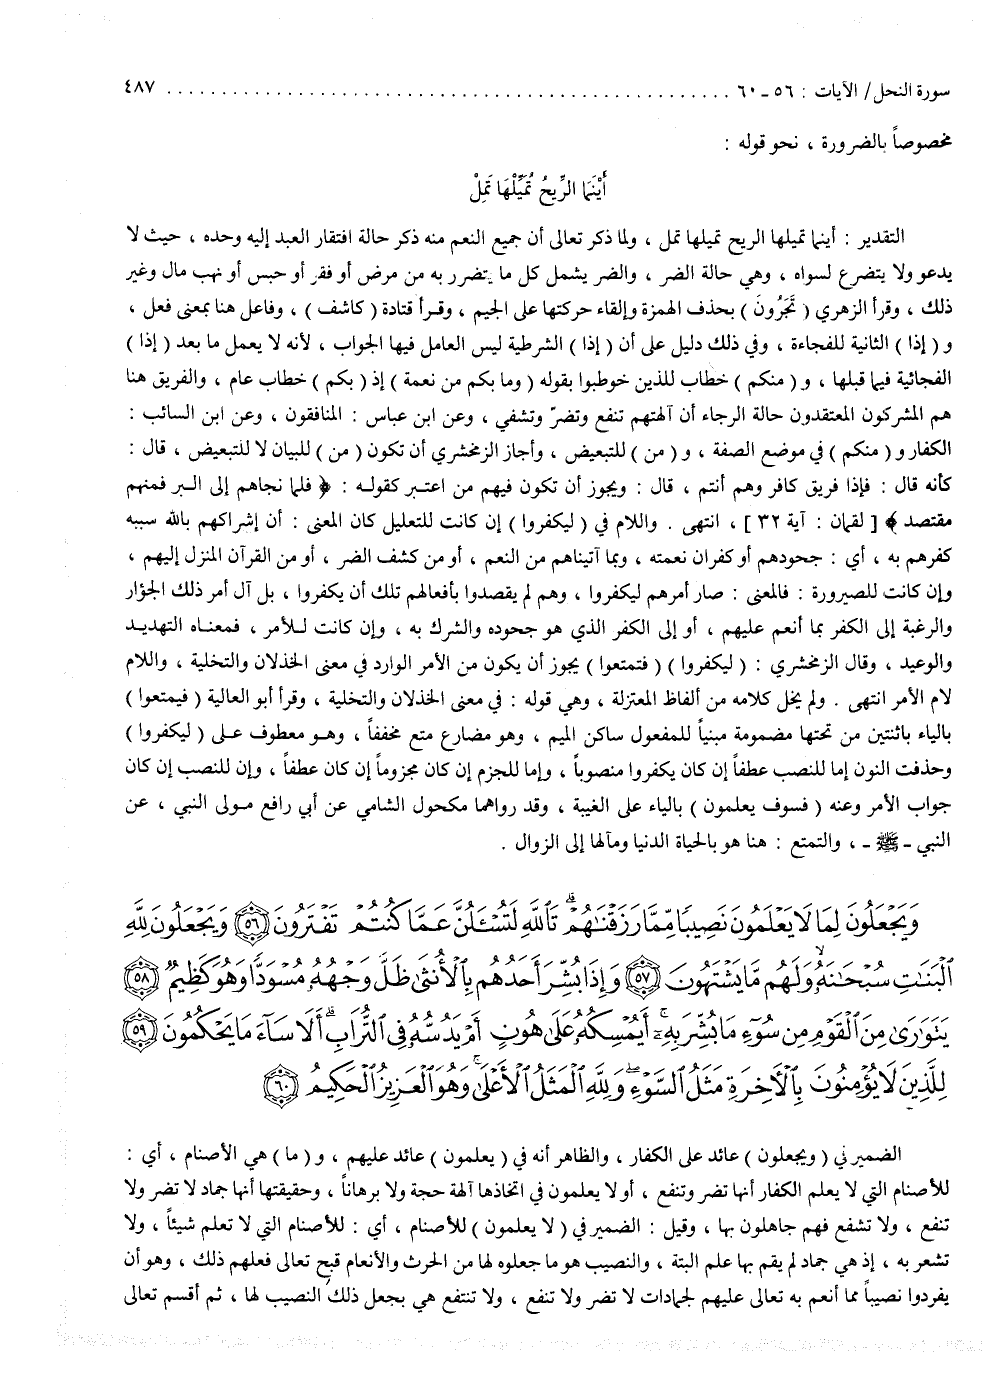 سورة النحل/ الآيات : ٥٦ ـ ٦٠ ........................................................ ٤٨٧
مخصوصاً بالضرورة ، نحو قوله :
أَيْنَمَا الرِّيحُ تُمَيِّلْهَا تَمِلْ
التقدير : أينما تميلها الريح تميلها تمل ، ولما ذكر تعالى أن جميع النعم منه ذكر حالة افتقار العبد إليه وحده ، حيث لا
يدعو ولا يتضرع لسواه ، وهي حالة الضر ، والضر يشمل كل ما يتضرر به من مرض أو فقر أو حبس أو نهب مال وغير
ذلك ، وقرأ الزهري ( تَجَرُونَ ) بحذف الهمزة وإلقاء حركتها على الجيم ، وقـرأ قتادة ( كاشف ) ، وفاعل هنا بمعنى فعل ،
و ( إذا ) الثانية للفجاءة ، وفي ذلك دليل على أن ( إذا ) الشرطية ليس العامل فيها الجواب ، لأنه لا يعمل ما بعد ( إذا )
الفجائية فيما قبلها ، و ( منكم ) خطاب للذين خوطبوا بقوله ( وما بكم من نعمة ) إذ ( بكم ) خطاب عام ، والفريق هنا
هم المشركون المعتقدون حالة الرجاء أن آلهتهم تنفع وتضرّ وتشفي ، وعن ابن عباس : المنافقون ، وعن ابن السائب :
الكفار و ( منكم ) في موضع الصفة ، و ( من ) للتبعيض ، وأجاز الزمخشري أن تكون ( من ) للبيان لا للتبعيض ، قال :
كأنه قال : فإذا فريق كافر وهم أنتم ، قال : ويجوز أن تكون فيهم من اعتـبر كقولـه : ﴿ فلما نجاهم إلى الـبر فمنهم
مقتصد ﴾ [ لقمان : آية ٣٢ ] ، انتهى . واللام في ( ليكفروا ) إن كانت للتعليل كان المعنى : أن إشراكهم بالله سببه
كفرهم به ، أي : جحودهم أو كفران نعمته ، وبما آتيناهم من النعم ، أو من كشف الضر ، أو من القرآن المنزل إليهم ،
وإن كانت للصيرورة : فالمعنى : صار أمرهم ليكفروا ، وهم لم يقصدوا بأفعالهم تلك أن يكفروا ، بل آل أمر ذلك الجؤار
والرغبة إلى الكفر بما أنعم عليهم ، أو إلى الكفر الذي هو جحوده والشرك به ، وإن كانت لـلأمر ، فمعنـاه التهديـد
والوعيد ، وقال الزمخشري : ( ليكفروا ) ( فتمتعوا ) يجوز أن يكون من الأمر الوارد في معنى الخذلان والتخلية ، واللام
لام الأمر انتهى . ولم يخل كلامه من ألفاظ المعتزلة ، وهي قوله : في معنى الخذلان والتخلية ، وقرأ أبو العالية ( فيمتعوا )
بالياء باثنتين من تحتها مضمومة مبنياً للمفعول ساكن الميم ، وهو مضارع متع مخففاً ، وهـو معطوف عـلى ( ليكفروا )
وحذفت النون إما للنصب عطفاً إن كان يكفروا منصوباً ، وإما للجزم إن كان مجزوماً إن كان عطفاً ، وإن للنصب إن كان
جواب الأمر وعنه ( فسوف يعلمون ) بالياء على الغيبة ، وقد رواهما مكحول الشامي عن أبي رافع مـولى النبي ، عن
النبي ـ ﷺ ـ ، والتمتع : هنا هو بالحياة الدنيا ومآلها إلى الزوال .
وَيَجْعَلُونَ لِمَا لَا يَعْلَمُونَ نَصِيبًا مِّمَّا رَزَقْنَاهُمْ ۗ تَاللَّهِ لَتُسْـَٔلُنَّ عَمَّا كُنتُمْ تَفْتَرُونَ ۝٥٦ وَيَجْعَلُونَ لِلَّهِ
الْبَنَاتِ سُبْحَانَهُ ۙ وَلَهُم مَّا يَشْتَهُونَ ۝٥٧ وَإِذَا بُشِّرَ أَحَدُهُم بِالْأُنثَىٰ ظَلَّ وَجْهُهُ مُسْوَدًّا وَهُوَ كَظِيمٌ ۝٥٨
يَتَوَارَىٰ مِنَ الْقَوْمِ مِن سُوٓءِ مَا بُشِّرَ بِهِ ۚ أَيُمْسِكُهُ عَلَىٰ هُونٍ أَمْ يَدُسُّهُ فِي التُّرَابِ ۗ أَلَا سَآءَ مَا يَحْكُمُونَ ۝٥٩
لِلَّذِينَ لَا يُؤْمِنُونَ بِالْآخِرَةِ مَثَلُ السَّوْءِ ۖ وَلِلَّهِ الْمَثَلُ الْأَعْلَىٰ ۚ وَهُوَ الْعَزِيزُ الْحَكِيمُ ۝٦٠
الضمير في ( ويجعلون ) عائد على الكفار ، والظاهر أنه في ( يعلمون ) عائد عليهم ، و ( ما ) هي الأصنام ، أي :
للأصنام التي لا يعلم الكفار أنها تضر وتنفع ، أو لا يعلمون في اتخاذها آلهة حجة ولا برهاناً ، وحقيقتها أنها جماد لا تضر ولا
تنفع ، ولا تشفع فهم جاهلون بها ، وقيل : الضمير في ( لا يعلمون ) للأصنام ، أي : للأصنام التي لا تعلم شيئاً ، ولا
تشعر به ، إذ هي جماد لم يقم بها علم البتة ، والنصيب هو ما جعلوه لها من الحرث والأنعام قبح تعالى فعلهم ذلك ، وهو أن
يفردوا نصيباً مما أنعم به تعالى عليهم لجمادات لا تضر ولا تنفع ، ولا تنتفع هي بجعل ذلك النصيب لها ، ثم أقسم تعالى